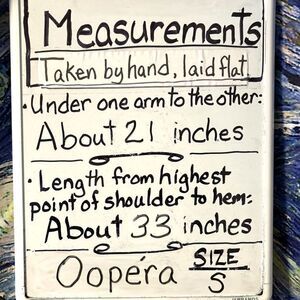 Measurements
Taken by hand, laid flat
• Under one arm to the other:
About 21 inches
• Length from highest
point of shoulder to hem:
About 33 inches
Oopéra SIZE
S